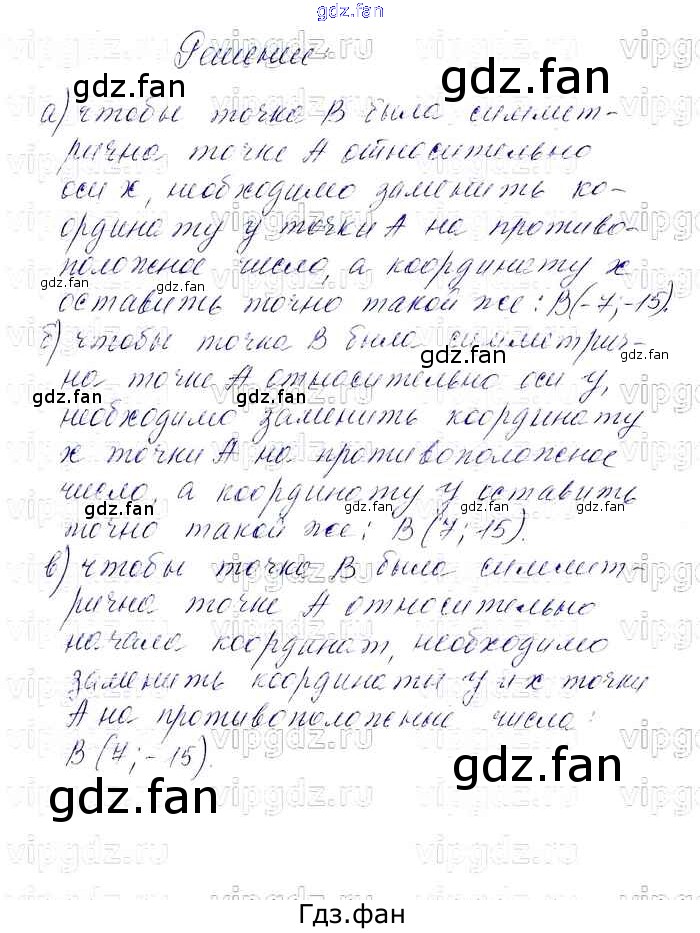 gdz.fan
Решение:
а) чтобы точка В была симмет-
рична точке А относительно
оси х, необходимо заменить ко-
ординату у точки А на противо-
положное число, а координату х
оставить точно такой же: В(-7;-15).
б) чтобы точка В была симметрич-
на точке А относительно оси у,
необходимо заменить координату
х точки А на противоположное
число, а координату у оставить
точно такой же: В(7;15).
в) чтобы точка В была симмет-
рична точке А относительно
начала координат, необходимо
заменить координаты у и х точки
А на противоположные числа:
В(7;-15).
gdz.fan
gdz.fan
Гдз.фан